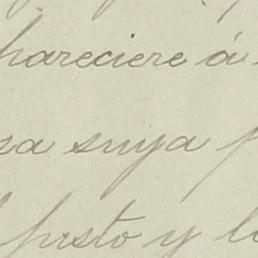 pareciere á
sa suya p
justo y lo